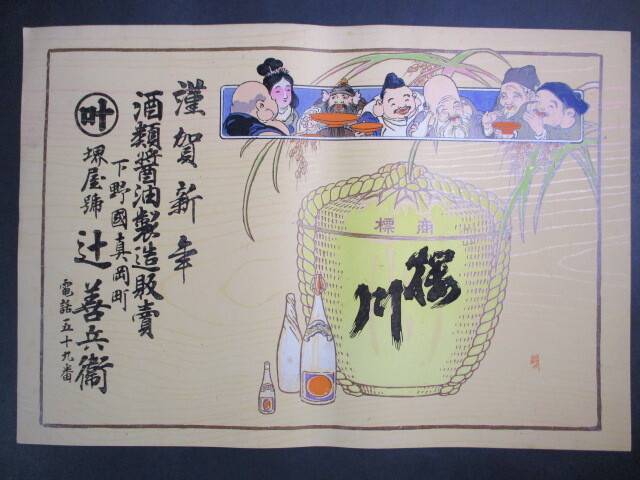 謹賀新年
酒類醤油製造販賣
下野國真岡町
叶
堺屋號
辻善兵衞
電話五十九番
商標
桜川